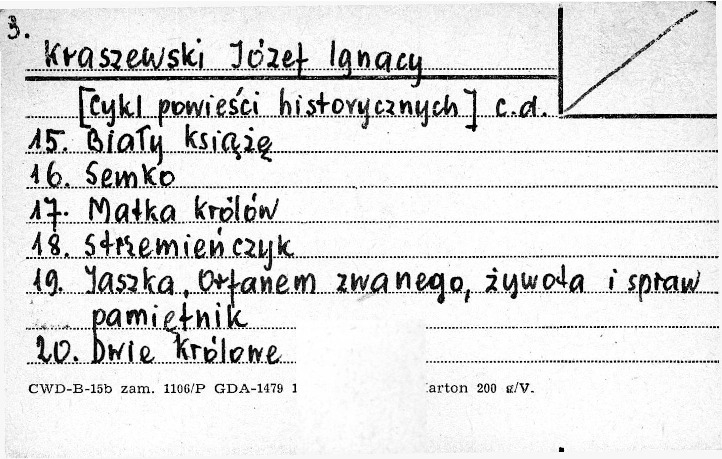 3.
Kraszewski Józef Ignacy
[Cykl powieści historycznych] c.d.
15. Biały książę
16. Semko
17. Matka królów
18. Strzemieńczyk
19. Jaszka, Orfanem zwanego, żywota i spraw
pamiętnik
20. Dwie królowe
CWD-B-15b zam. 1106/P GDA-1479 1 arton 200 g/V.